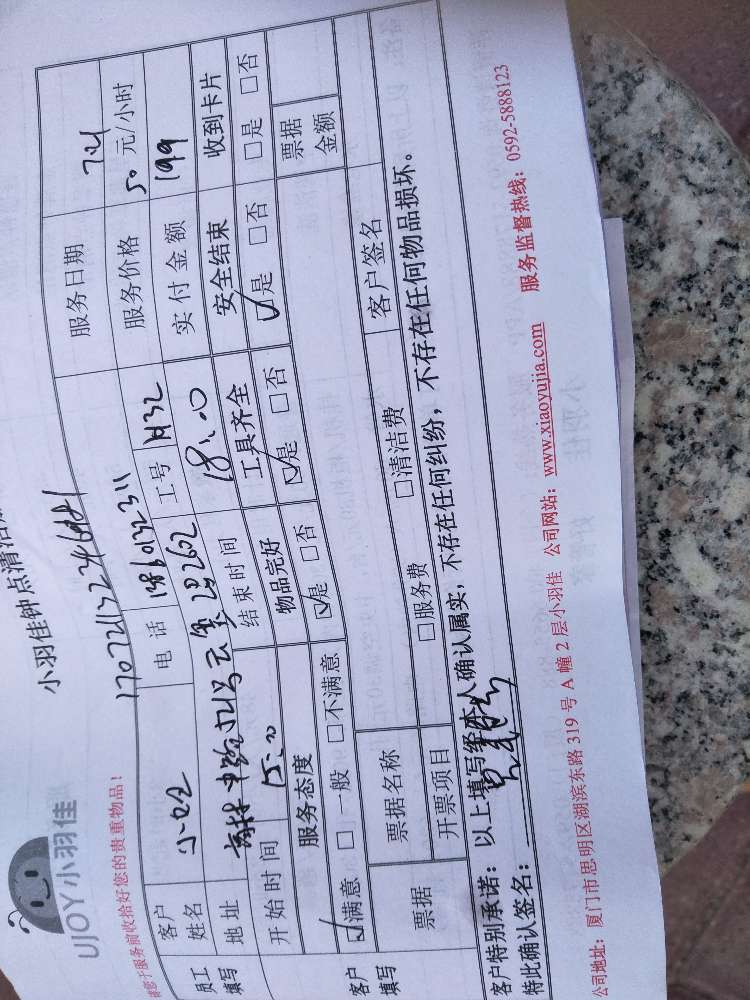 UJOY小羽佳
小羽佳钟点清洁
请您于服务前收拾好您的贵重物品!
员工填写
客户姓名
电话
工号 H32
服务日期 7.21
地址
服务价格 50 元/小时
开始时间 15:00
结束时间 18:00
实付金额 199
客户填写
服务态度 物品完好 工具齐全 安全结束 收到卡片
☑满意 □一般 □不满意 ☑是 □否 ☑是 □否 ☑是 □否 □是 □否
票据
票据名称
票据金额
开票项目 □服务费 □清洁费 客户签名
客户特别承诺:以上填写经本人确认属实,不存在任何纠纷,不存在任何物品损坏。
特此确认签名:
公司地址:厦门市思明区湖滨东路 319 号 A 幢 2 层小羽佳 公司网站:www.xiaoyujia.com 服务监督热线:0592-5888123